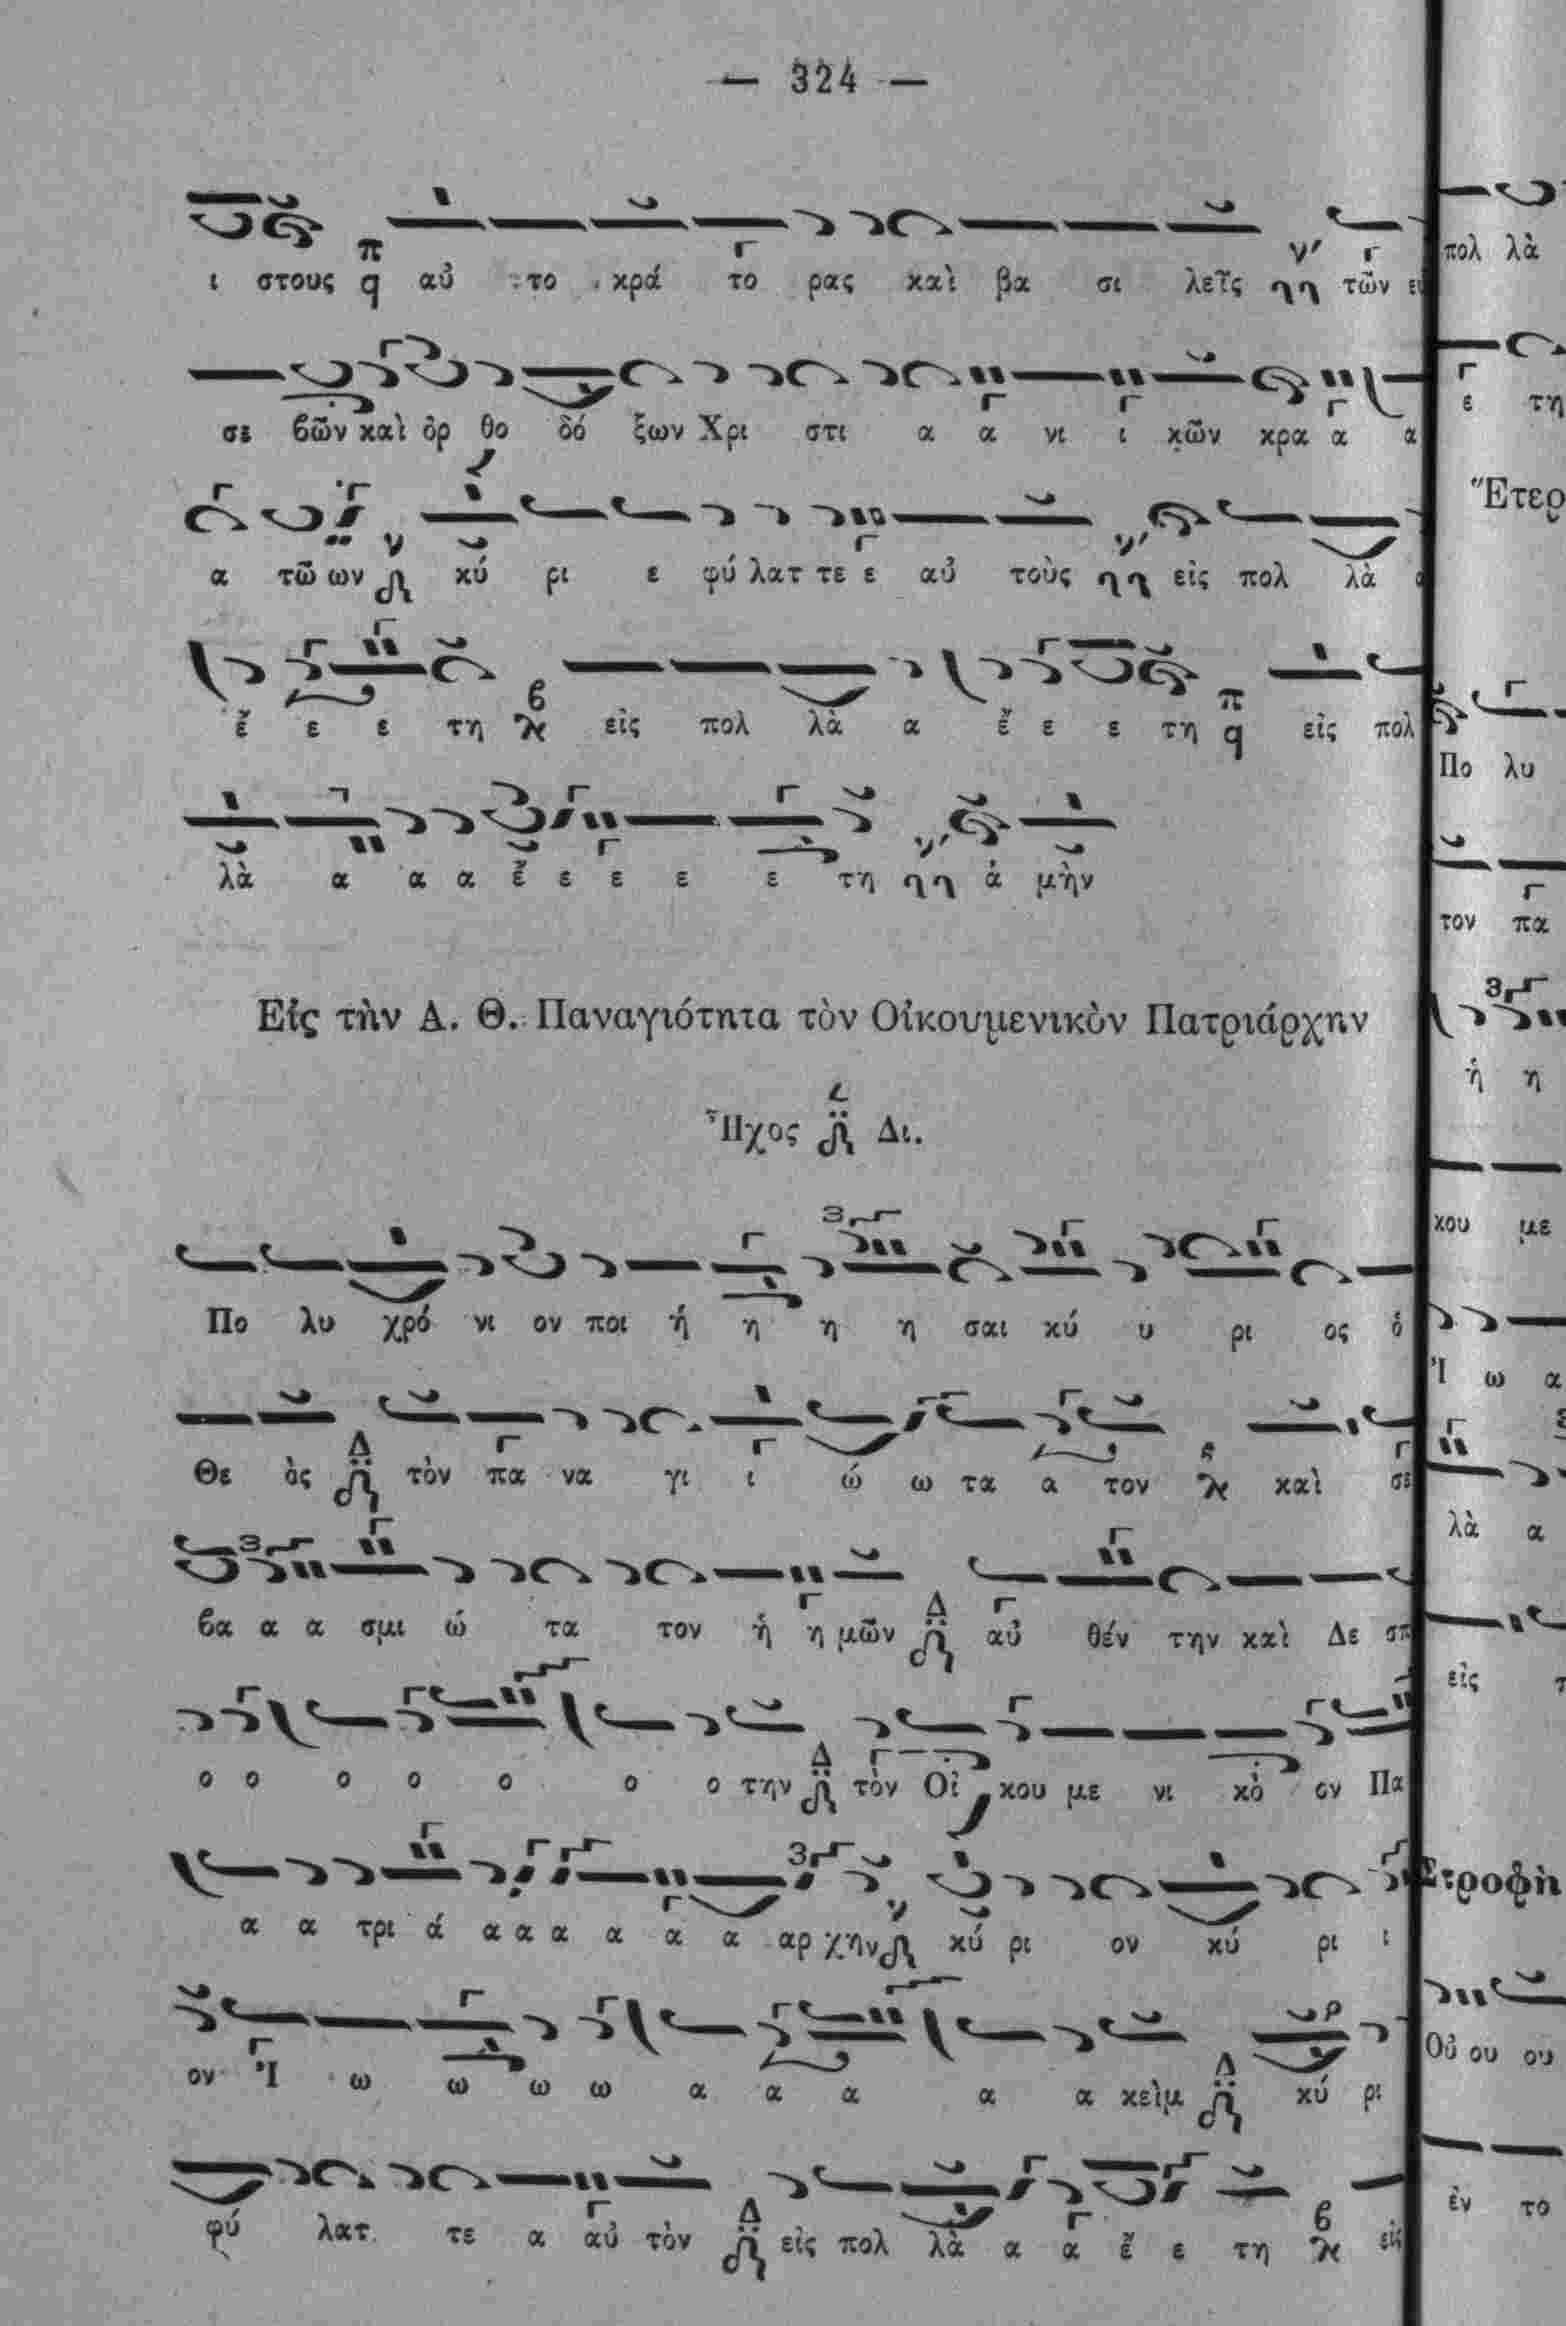 — 324 —
ι στους αὐ το κρά το ρας καὶ βα σι λεῖς τῶν
σε βῶν καὶ ὀρ θο δό ξων Χρι στι α α νι ι κῶν κρα α α
α τῶ ων κύ ρι ε φύ λατ τε ε αὐ τοὺς εἰς πολ λὰ
ἔ ε ε τη εἰς πολ λὰ α ἔ ε ε τη εἰς πολ
λὰ α α α ἔ ε ε ε ε τη ἀ μὴν
Εἰς τὴν Α. Θ. Παναγιότητα τὸν Οἰκουμενικὸν Πατριάρχην
Ἦχος Δι.
Πο λυ χρό νι ον ποι ή η η η σαι κύ υ ρι ος ὁ
Θε ὸς τὸν πα να γι ι ώ ω τα α τον καὶ σε
βα α α σμι ώ τα τον ἡ η μῶν αὐ θέν την καὶ Δε σπ
ο ο ο ο ο ο ο την τὸν Οἰ κου με νι κὸ ον Πα
α α τρι ά α α α α α α αρ χην κύ ρι ον κύ ρι ι
ον Ἰ ω ω ω ω α α α α α κεὶμ κύ ρι
φύ λατ τε α αὐ τὸν εἰς πολ λὰ α α ἔ ε τη εἰς
πολ λὰ
ε τη
Ἕτερ
Πο λυ
τον πα
ἡ η
κου με
Ἰ ω α
λὰ α
εἰς
Στροφὴ
Οὐ ου ου
ἐν το